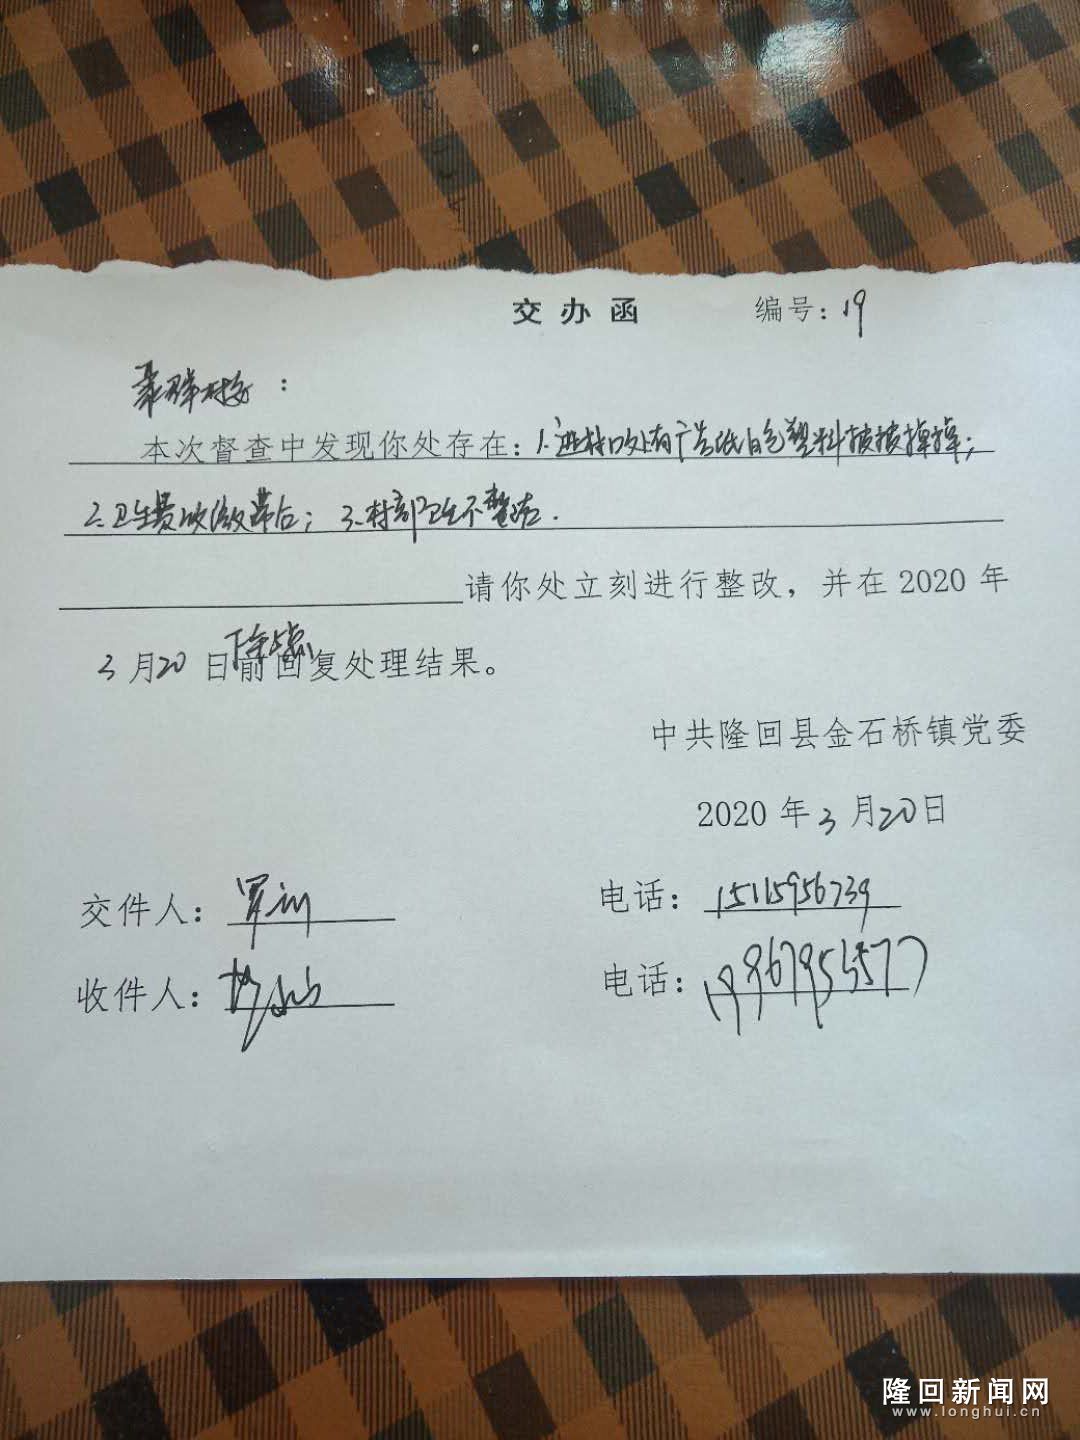 交办函 编号：19
群村：
本次督查中发现你处存在：1.进村口处有广告纸白色塑料披披掉掉；
2.卫生费收缴滞后；3.村部卫生不整洁.
请你处立刻进行整改，并在2020年
3月20日下午5点前回复处理结果。
中共隆回县金石桥镇党委
2020年3月20日
交件人： 电话：15115956739
收件人： 电话：
隆回新闻网
www.longhui.cn